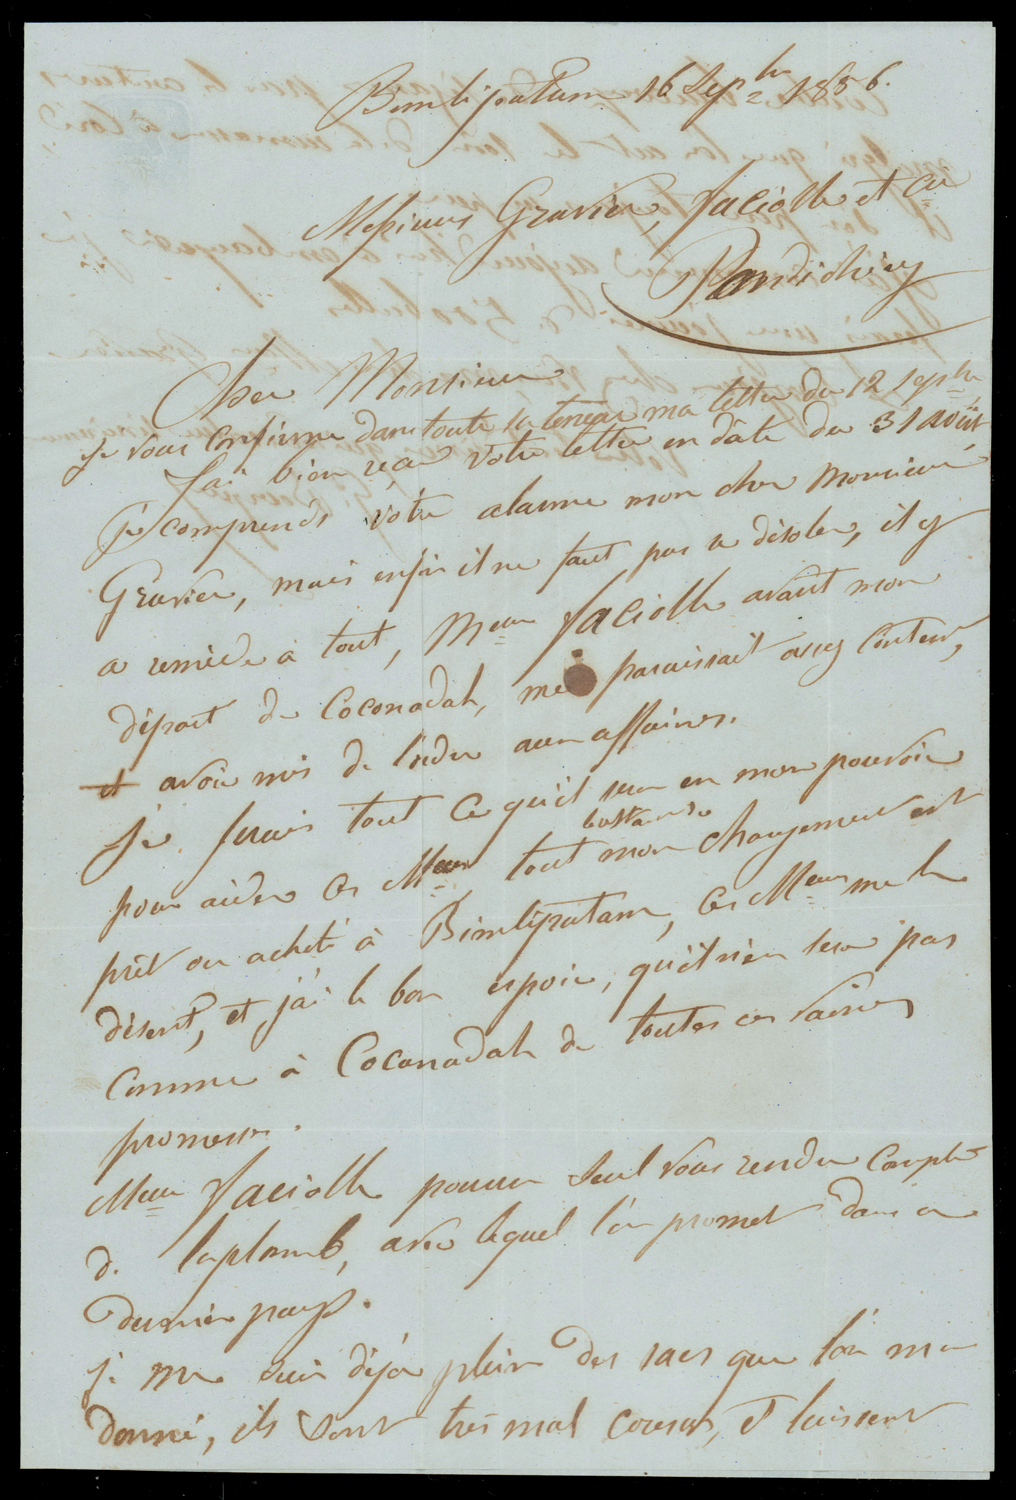 Bimlipatam 16 Sepbre 1856.
Messieurs Gravier, Faciolle et Cie
Pondichéry
Cher Monsieur
Je vous confirme dans toute sa teneur ma lettre du 12 Sepbre
J'ai bien reçu votre lettre en dâte du 31 août,
je comprends vôtre alarme mon cher Monsieur
Gravier, mais enfin il ne faut pas se désoler, il y
a remède à tout, Meur Faciolle avant mon
départ de Coconadah, me paraissait assez content,
et avoir mis de l'ordre aux affaires.
Je ferais tout ce qu'il sera en mon pouvoir
pour aider ces Meurs tout mon chargement est
prêt ou acheté à Bimlipatam, ces Meurs me le
disent, et j'ai le bon espoir, qu'il n'en sera pas
comme à Coconadah de toutes ces vaines
promesses.
Meur Faciolle pourra seul vous rendre compte
de l'aplomb, avec lequel l'on promet dans ce
dernier pays.
je me suis déjà plein des sacs que l'on m'a
donné, ils sont très mal cousus, et laissent